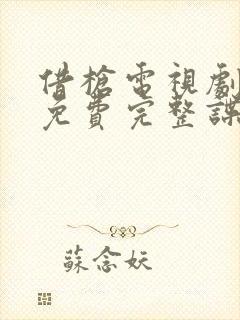 借槍電視劇
免費完整諜
蘇念妖